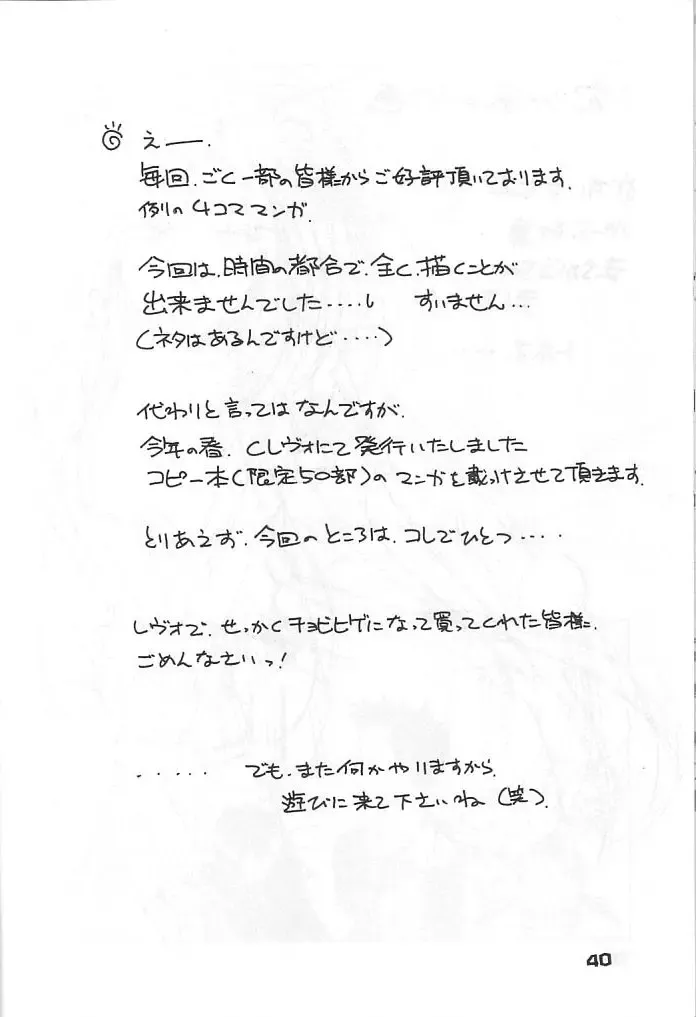 えー.
毎回.ごく一部の皆様からご好評頂いております.
例の4コママンガ.
今回は.時間の都合で.全く.描くことが
出来ませんでした....し すいません...
(ネタはあるんですけど....)
代わりと言ってはなんですが.
今年の春.Cレヴォにて発行いたしました
コピー本(限定50部)のマンガを載っけさせて頂きます.
とりあえず.今回のところは.コレでひとつ....
レヴォで.せっかくチョビヒゲになって買ってくれた皆様.
ごめんなさいっ!
..... でも.また何かやりますから.
遊びに来て下さいね(笑).
40